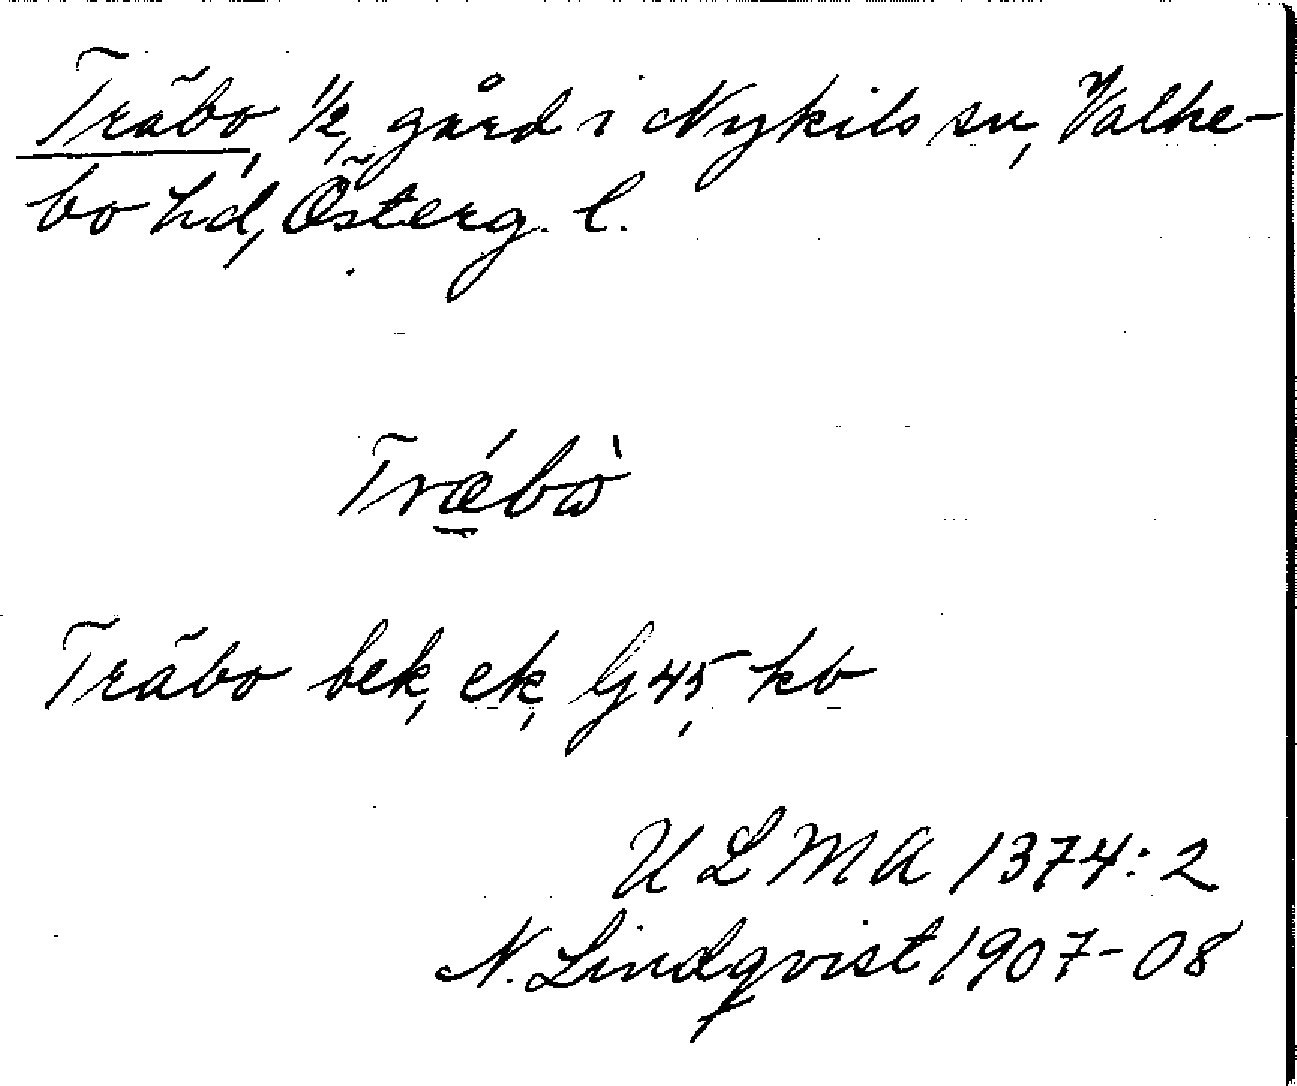 Träbo, 1/2, gård i Nykils sn, Valke-
bo hd, Österg. l.
Trǽbò
Träbo bek, ek, Gj 45, kb
ULMA 1374:2
N. Lindqvist 1907-08